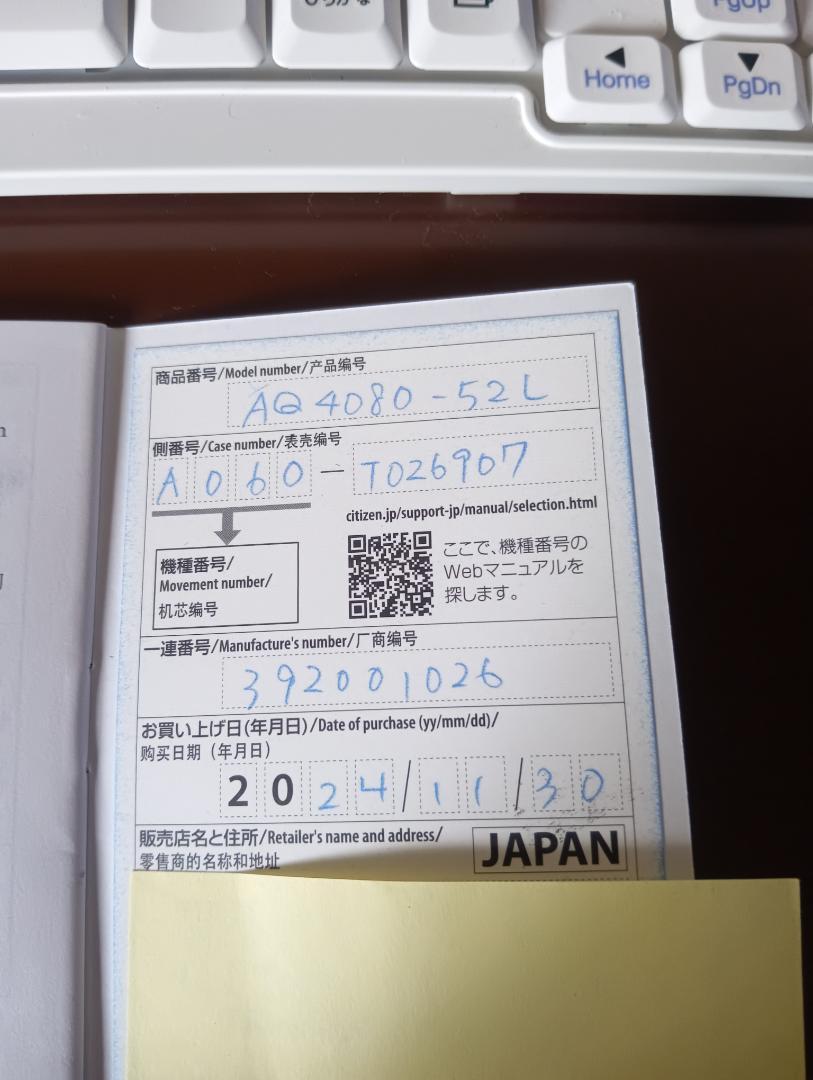 Home
PgDn
商品番号/Model number/产品编号
AQ4080-52L
側番号/Case number/表壳编号
A060-T026907
citizen.jp/support-jp/manual/selection.html
機種番号/
Movement number/
机芯编号
ここで、機種番号の
Webマニュアルを
探します。
一連番号/Manufacture's number/厂商编号
392001026
お買い上げ日(年月日)/Date of purchase (yy/mm/dd)/
购买日期（年月日）
2024/11/30
販売店名と住所/Retailer's name and address/
零售商的名称和地址
JAPAN